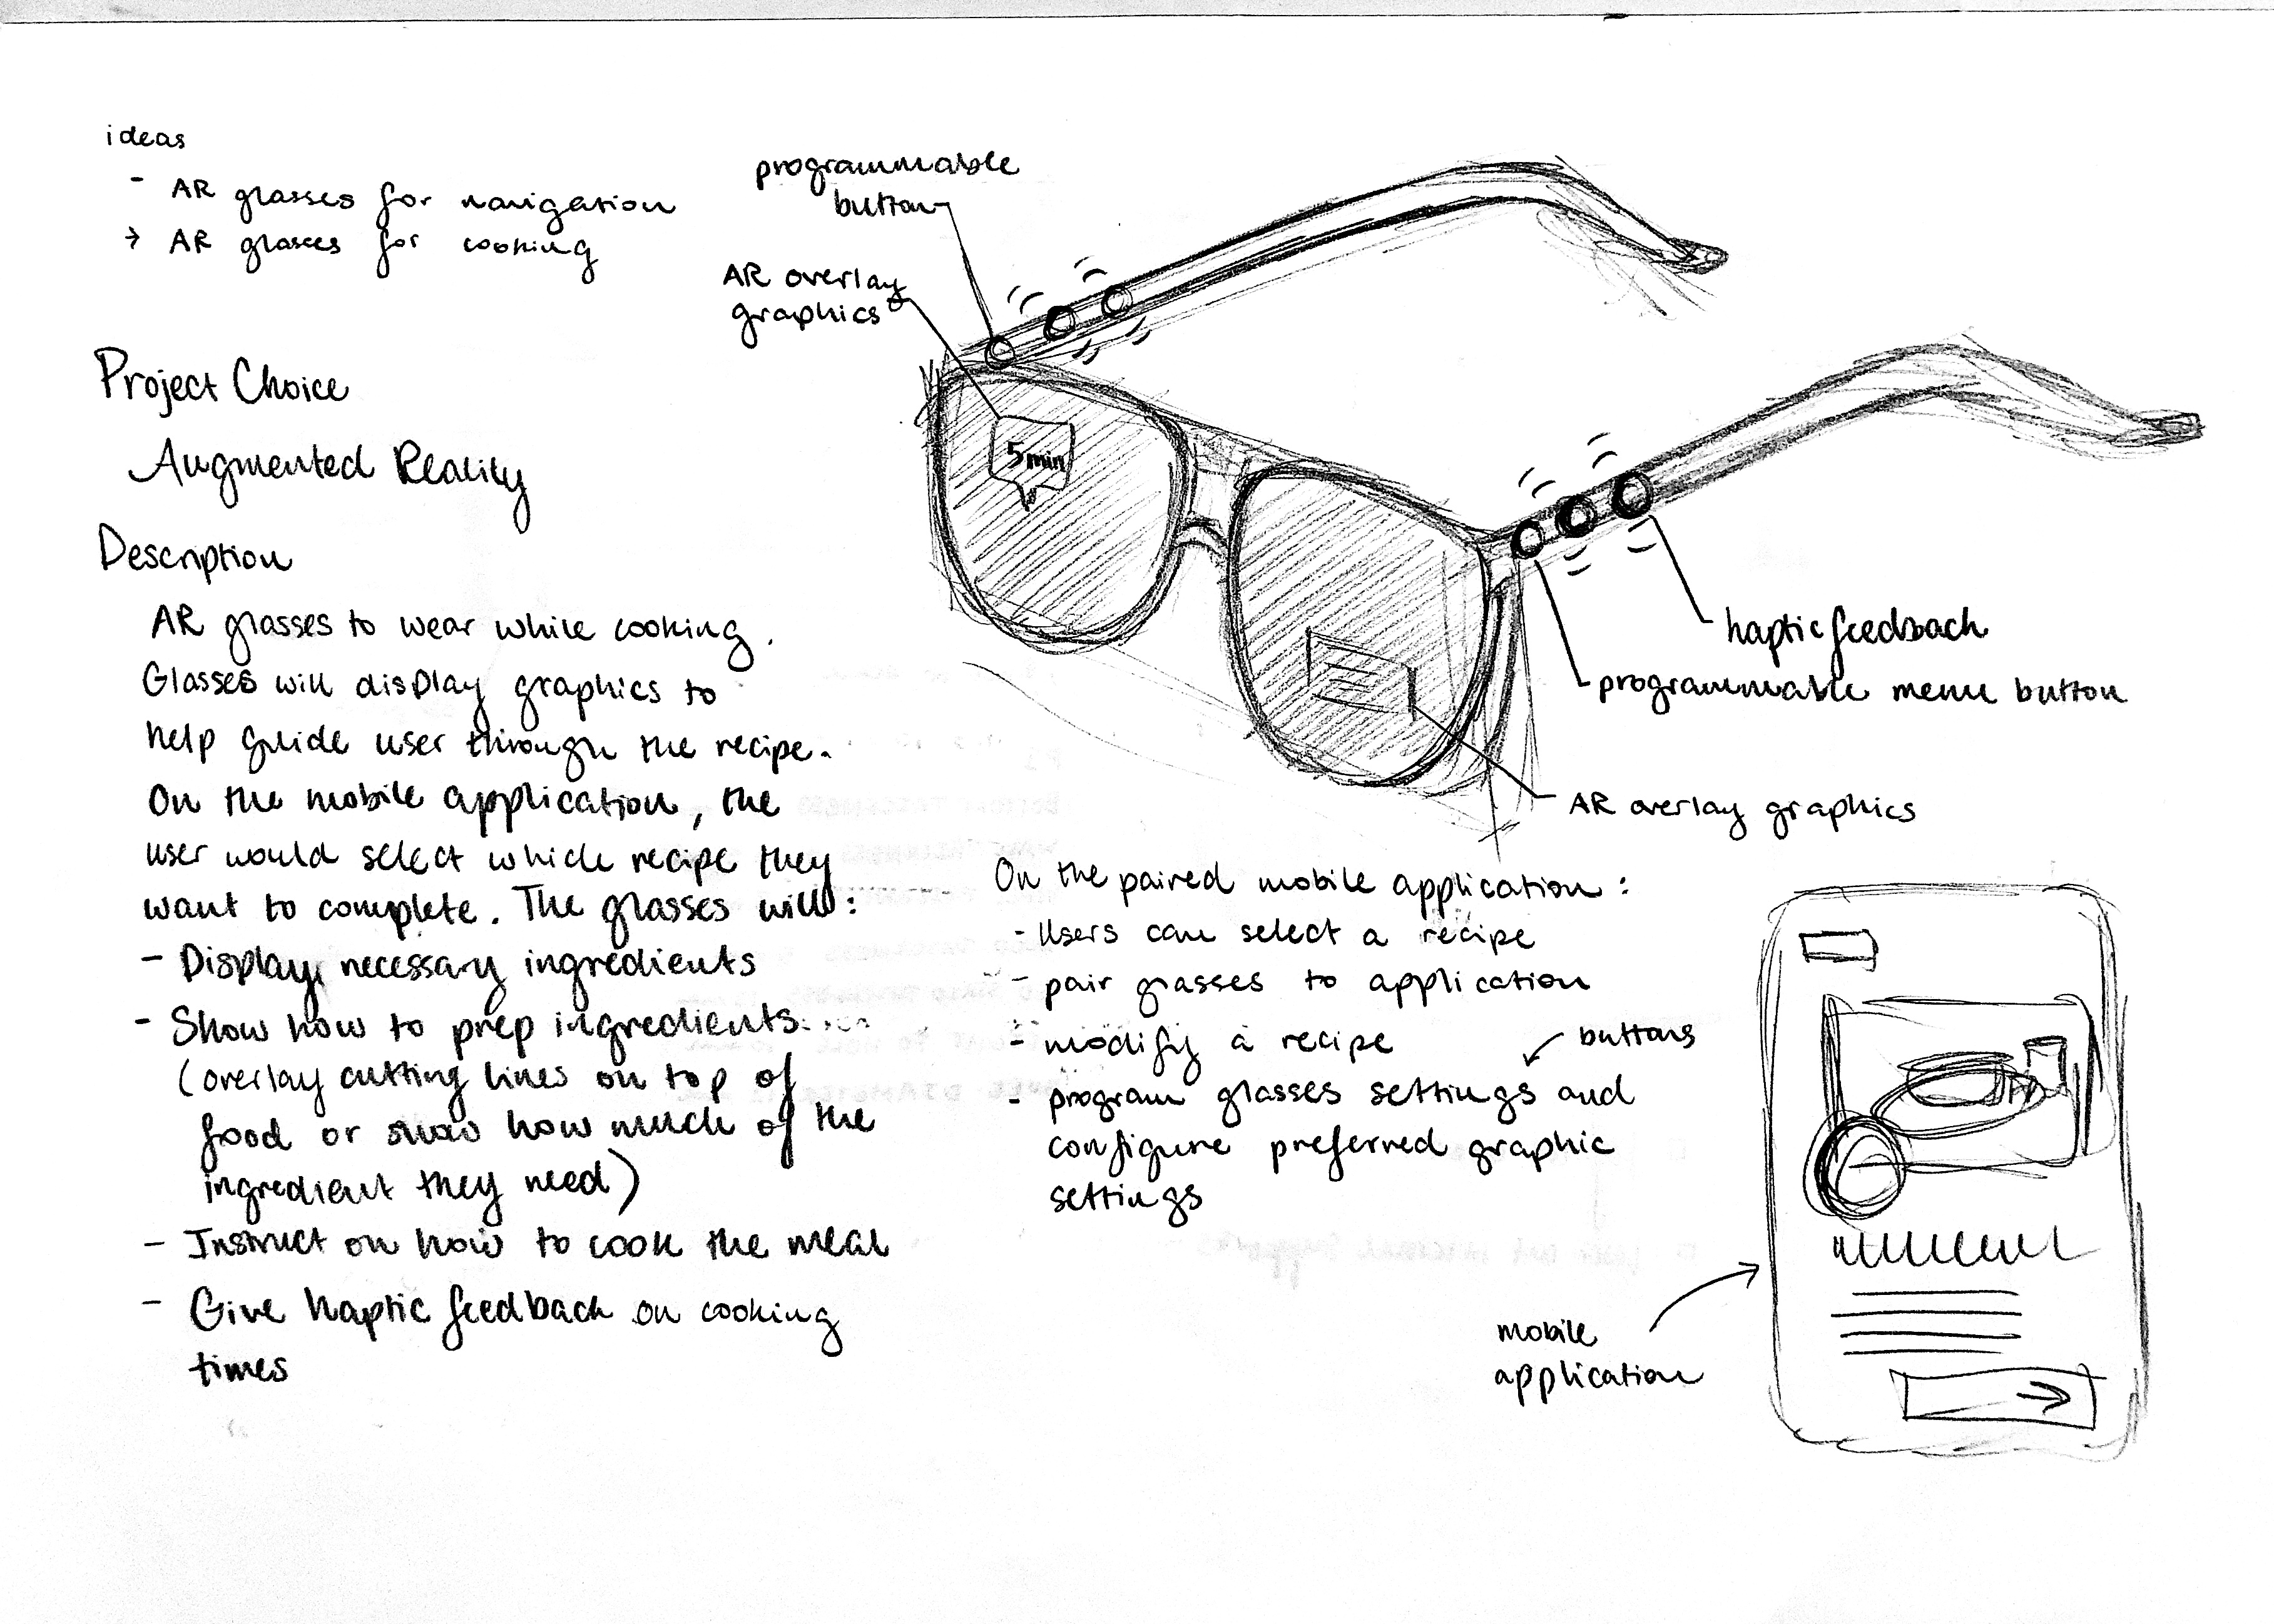 ideas
- AR glasses for navigation
→ AR glasses for cooking
Project Choice
Augmented Reality
Description
AR glasses to wear while cooking.
Glasses will display graphics to
help guide user through the recipe.
On the mobile application, the
user would select which recipe they
want to complete. The glasses will:
- Display necessary ingredients
- Show how to prep ingredients
(overlay cutting lines on top of
food or show how much of the
ingredient they need)
- Instruct on how to cook the meal
- Give haptic feedback on cooking
times
programmable
button
AR overlay
graphics
5 min
haptic feedback
programmable menu button
AR overlay graphics
On the paired mobile application:
- Users can select a recipe
- pair glasses to application
- modify a recipe
buttons
- program glasses settings and
configure preferred graphic
settings
mobile
application